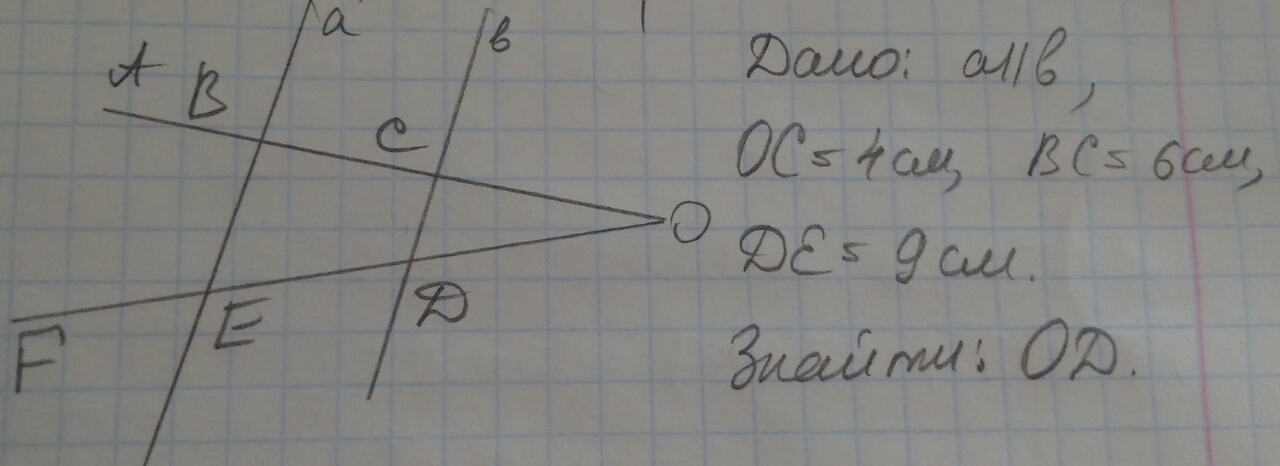 a
в
A
B
C
O
F
E
D
Дано: a||в,
OC = 4 см, BC = 6 см,
DE = 9 см.
Знайти: OD.